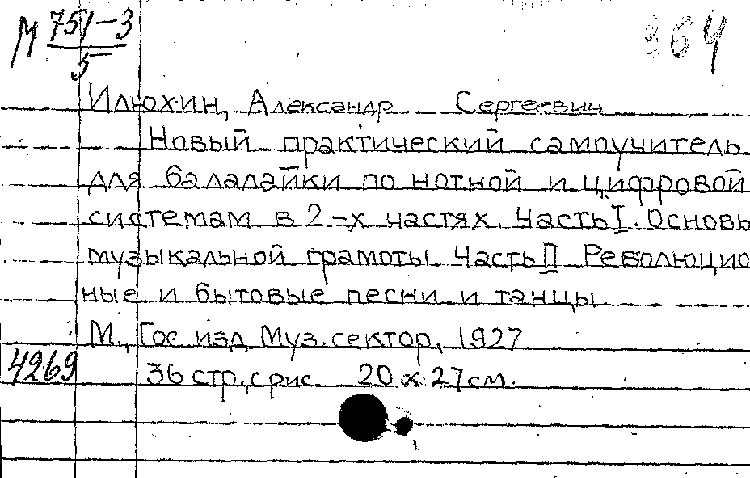 М 751-3
5
864
Илюхин, Александр Сергеевич
Новый практический самоучитель
для балалайки по нотной и цифровой
системам в 2-х частях. Часть I. Основы
музыкальной грамоты. Часть II Революцион
ные и бытовые песни и танцы.
М., Гос. изд. Муз. сектор, 1927
4269 36 стр., с рис. 20 х 27 см.